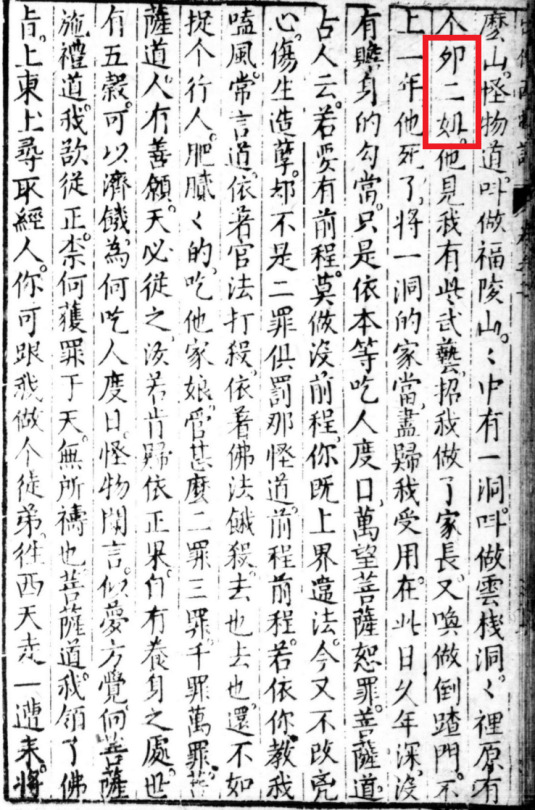 麽山。怪物道。呌做福陵山。〻中有一洞。呌做雲棧洞。〻裡原有
个夘二姐。他見我有些武藝。招我做了家長。又喚做倒蹅門。不
上一年他死了。將一洞的家當盡歸我受用。在此日久年深。沒
有贍身的勾當。只是依本等吃人度日。萬望菩薩恕罪。菩薩道。
古人云。若要有前程。莫做沒前程。你既上界違法。今又不改兇
心。傷生造孽。却不是二罪俱罰。那怪道。前程前程。若依你。教我
嗑風。常言道。依着官法打殺。依着佛法餓殺。去也去也。還不如
捉个行人。肥膩〻的。吃他家娘。管甚麼二罪三罪。千罪萬罪。菩
薩道。人有善願。天必從之。汝若肯歸依正果。自有養身之處。世
有五穀。可以濟饑。為何吃人度日。怪物聞言。似夢方覺。向菩薩
施禮道。我欲從正。柰何獲罪于天。無所禱也。菩薩道。我領了佛
旨。上東土尋取經人。你可跟我做个徒弟。往西天走一遭來。將